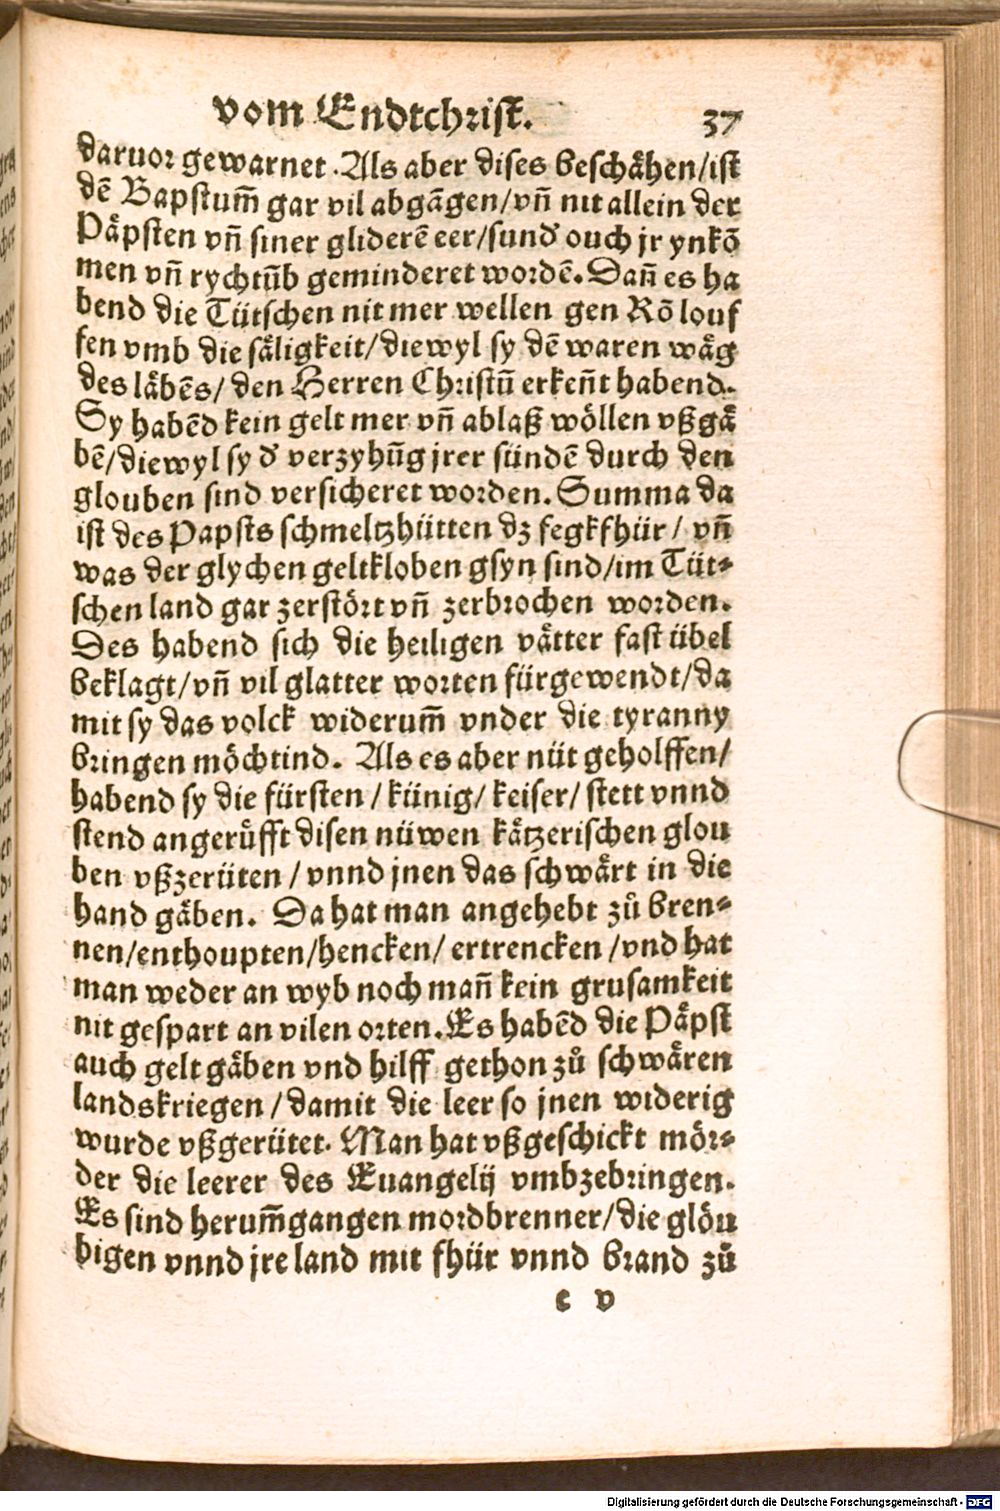 vom Endtchrist. 37
daruor gewarnet. Als aber dises beschåhen/ist
dē Bapstum̄ gar vil abgāgen/vn̄ nit allein der
Påpsten vn̄ siner gliderē eer/sund' ouch jr ynkō
men vn̄ rychtūb geminderet wordē. Dan̄ es ha
bend die Tütschen nit mer wellen gen Rō louf
fen vmb die såligkeit/diewyl sy dē waren wåg
des låbēs/den Herren Christū erken̄t habend.
Sy habēd kein gelt mer vn̄ ablaß wöllen vßgå
bē/diewyl sy d' verzyhūg jrer sündē durch den
glouben sind versicheret worden. Summa da
ist des Papsts schmeltzhütten dz fegkfhür/ vn̄
was der glychen geltkloben gsyn sind/im Tüt-
schen land gar zerstört vn̄ zerbrochen worden.
Des habend sich die heiligen våtter fast übel
beklagt/vn̄ vil glatter worten fürgewendt/da
mit sy das volck widerum̄ vnder die tyranny
bringen möchtind. Als es aber nüt geholffen/
habend sy die fürsten/künig/keiser/stett vnnd
stend angerůfft disen nüwen kåtzerischen glou
ben vßzerüten/vnnd jnen das schwårt in die
hand gåben. Da hat man angehebt zů bren-
nen/enthoupten/hencken/ertrencken/vnd hat
man weder an wyb noch man̄ kein grusamkeit
nit gespart an vilen orten. Es habēd die Påpst
auch gelt gåben vnd hilff gethon zů schwåren
landskriegen/damit die leer so jnen widerig
wurde vßgerütet. Man hat vßgeschickt mör-
der die leerer des Euangelij vmbzebringen.
Es sind herum̄gangen mordbrenner/die glöu
bigen vnnd jre land mit fhür vnnd brand zů
e v
Digitalisierung gefördert durch die Deutsche Forschungsgemeinschaft - DFG